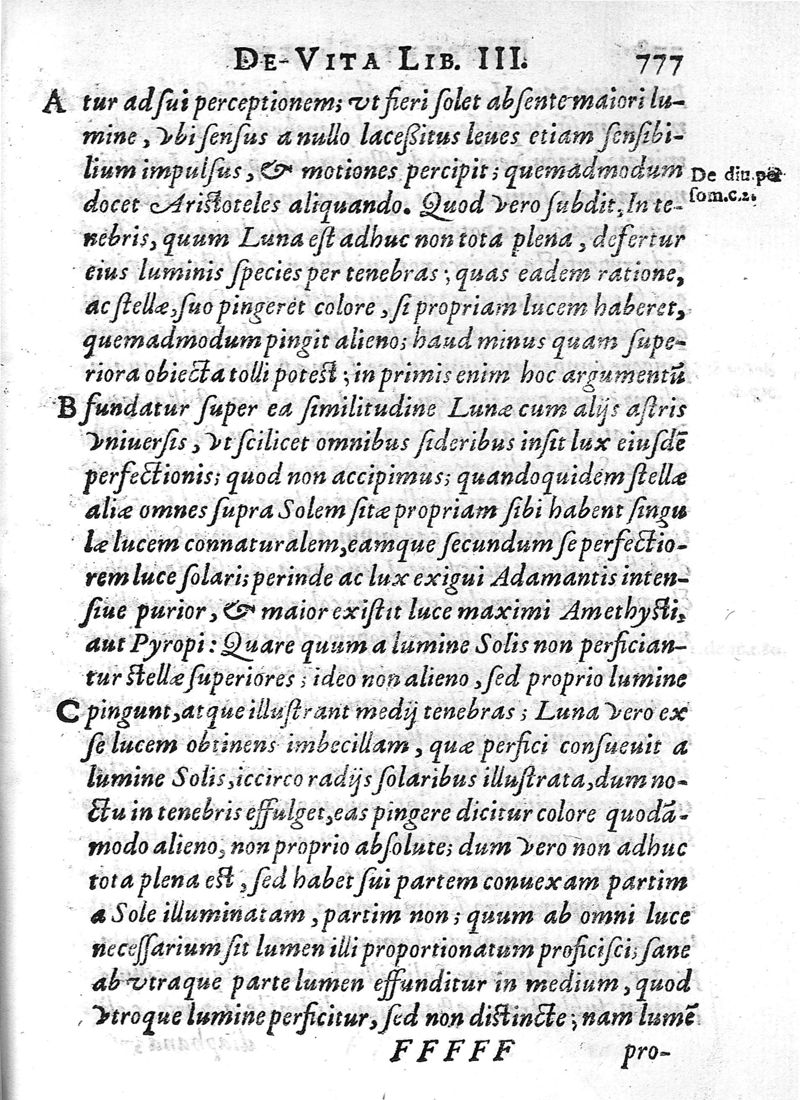 DE-VITA LIB. III. 777
A tur ad ſui perceptionem; vt fieri ſolet abſente maiori lu-
mine, vbi ſenſus a nullo laceßitus leues etiam ſenſibi-
lium impulſus, & motiones percipit; quemadmodum
De diu. per
docet Ariſtoteles aliquando. Quod vero ſubdit, In te-
ſom.c.2.
nebris, quum Luna eſt adhuc non tota plena, defertur
eius luminis ſpecies per tenebras; quas eadem ratione,
ac ſtellæ, ſuo pingeret colore, ſi propriam lucem haberet,
quemadmodum pingit alieno; haud minus quam ſupe-
riora obiecta tolli poteſt; in primis enim hoc argumentū
B fundatur ſuper ea ſimilitudine Lunæ cum alijs aſtris
vniuerſis, vt ſcilicet omnibus ſideribus inſit lux eiuſdē
perfectionis; quod non accipimus; quandoquidem ſtellæ
aliæ omnes ſupra Solem ſitæ propriam ſibi habent ſingu
læ lucem connaturalem, eamque ſecundum ſe perfectio-
rem luce ſolari; perinde ac lux exigui Adamantis inten-
ſiue purior, & maior exiſtit luce maximi Amethyſti,
aut Pyropi: Quare quum a lumine Solis non perfician-
tur ſtellæ ſuperiores; ideo non alieno, ſed proprio lumine
C pingunt, atque illuſtrant medij tenebras; Luna vero ex
ſe lucem obtinens imbecillam, quæ perfici conſueuit a
lumine Solis, iccirco radijs ſolaribus illuſtrata, dum no-
ctu in tenebris effulget, eas pingere dicitur colore quodā-
modo alieno, non proprio abſolute; dum vero non adhuc
tota plena eſt, ſed habet ſui partem conuexam partim
a Sole illuminatam, partim non; quum ab omni luce
neceſſarium ſit lumen illi proportionatum proficiſci; ſane
ab vtraque parte lumen effunditur in medium, quod
vtroque lumine perficitur, ſed non diſtincte; nam lumē
FFFFF pro-